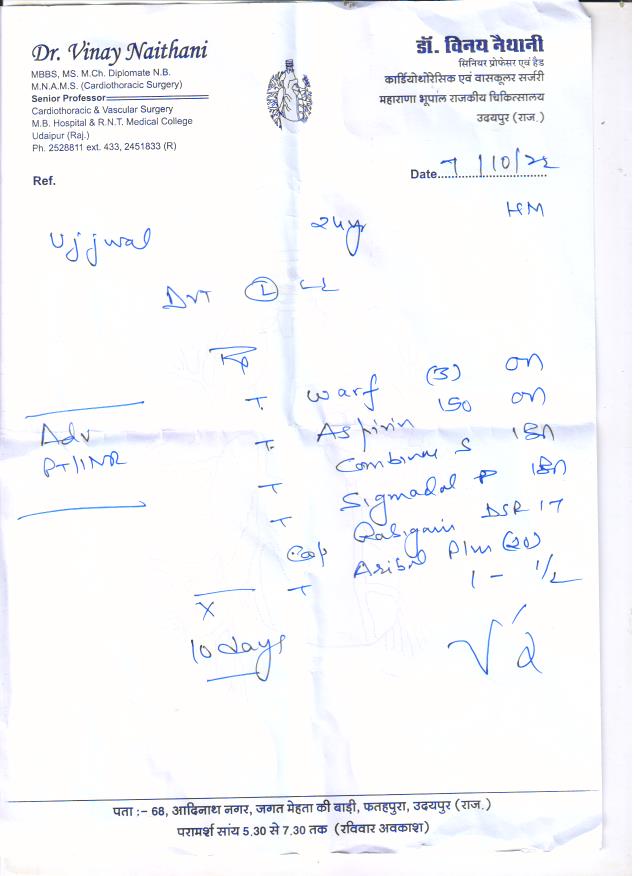 Dr. Vinay Naithani
MBBS, MS. M.Ch. Diplomate N.B.
M.N.A.M.S. (Cardiothoracic Surgery)
Senior Professor
Cardiothoracic & Vascular Surgery
M.B. Hospital & R.N.T. Medical College
Udaipur (Raj.)
Ph. 2528811 ext. 433, 2451833 (R)
डॉ. विनय नैथानी
सिनियर प्रोफेसर एवं हैड
कार्डियोथोरेसिक एवं वासकूलर सर्जरी
महाराणा भूपाल राजकीय चिकित्सालय
उदयपुर (राज.)
Ref.
Date 7/10/22
Ujjwal 24yr
DVT (L) LL
Rp
T. Warf (3) on
T. Aspirin 150 on
Adv
PT/INR
T Sigmadol P
Cap DSR
T Plus (20)
1 - 1/2
X
10 days
पता :– 68, आदिनाथ नगर, जगत मेहता की बाड़ी, फतहपुरा, उदयपुर (राज.)
परामर्श सांय 5.30 से 7.30 तक (रविवार अवकाश)